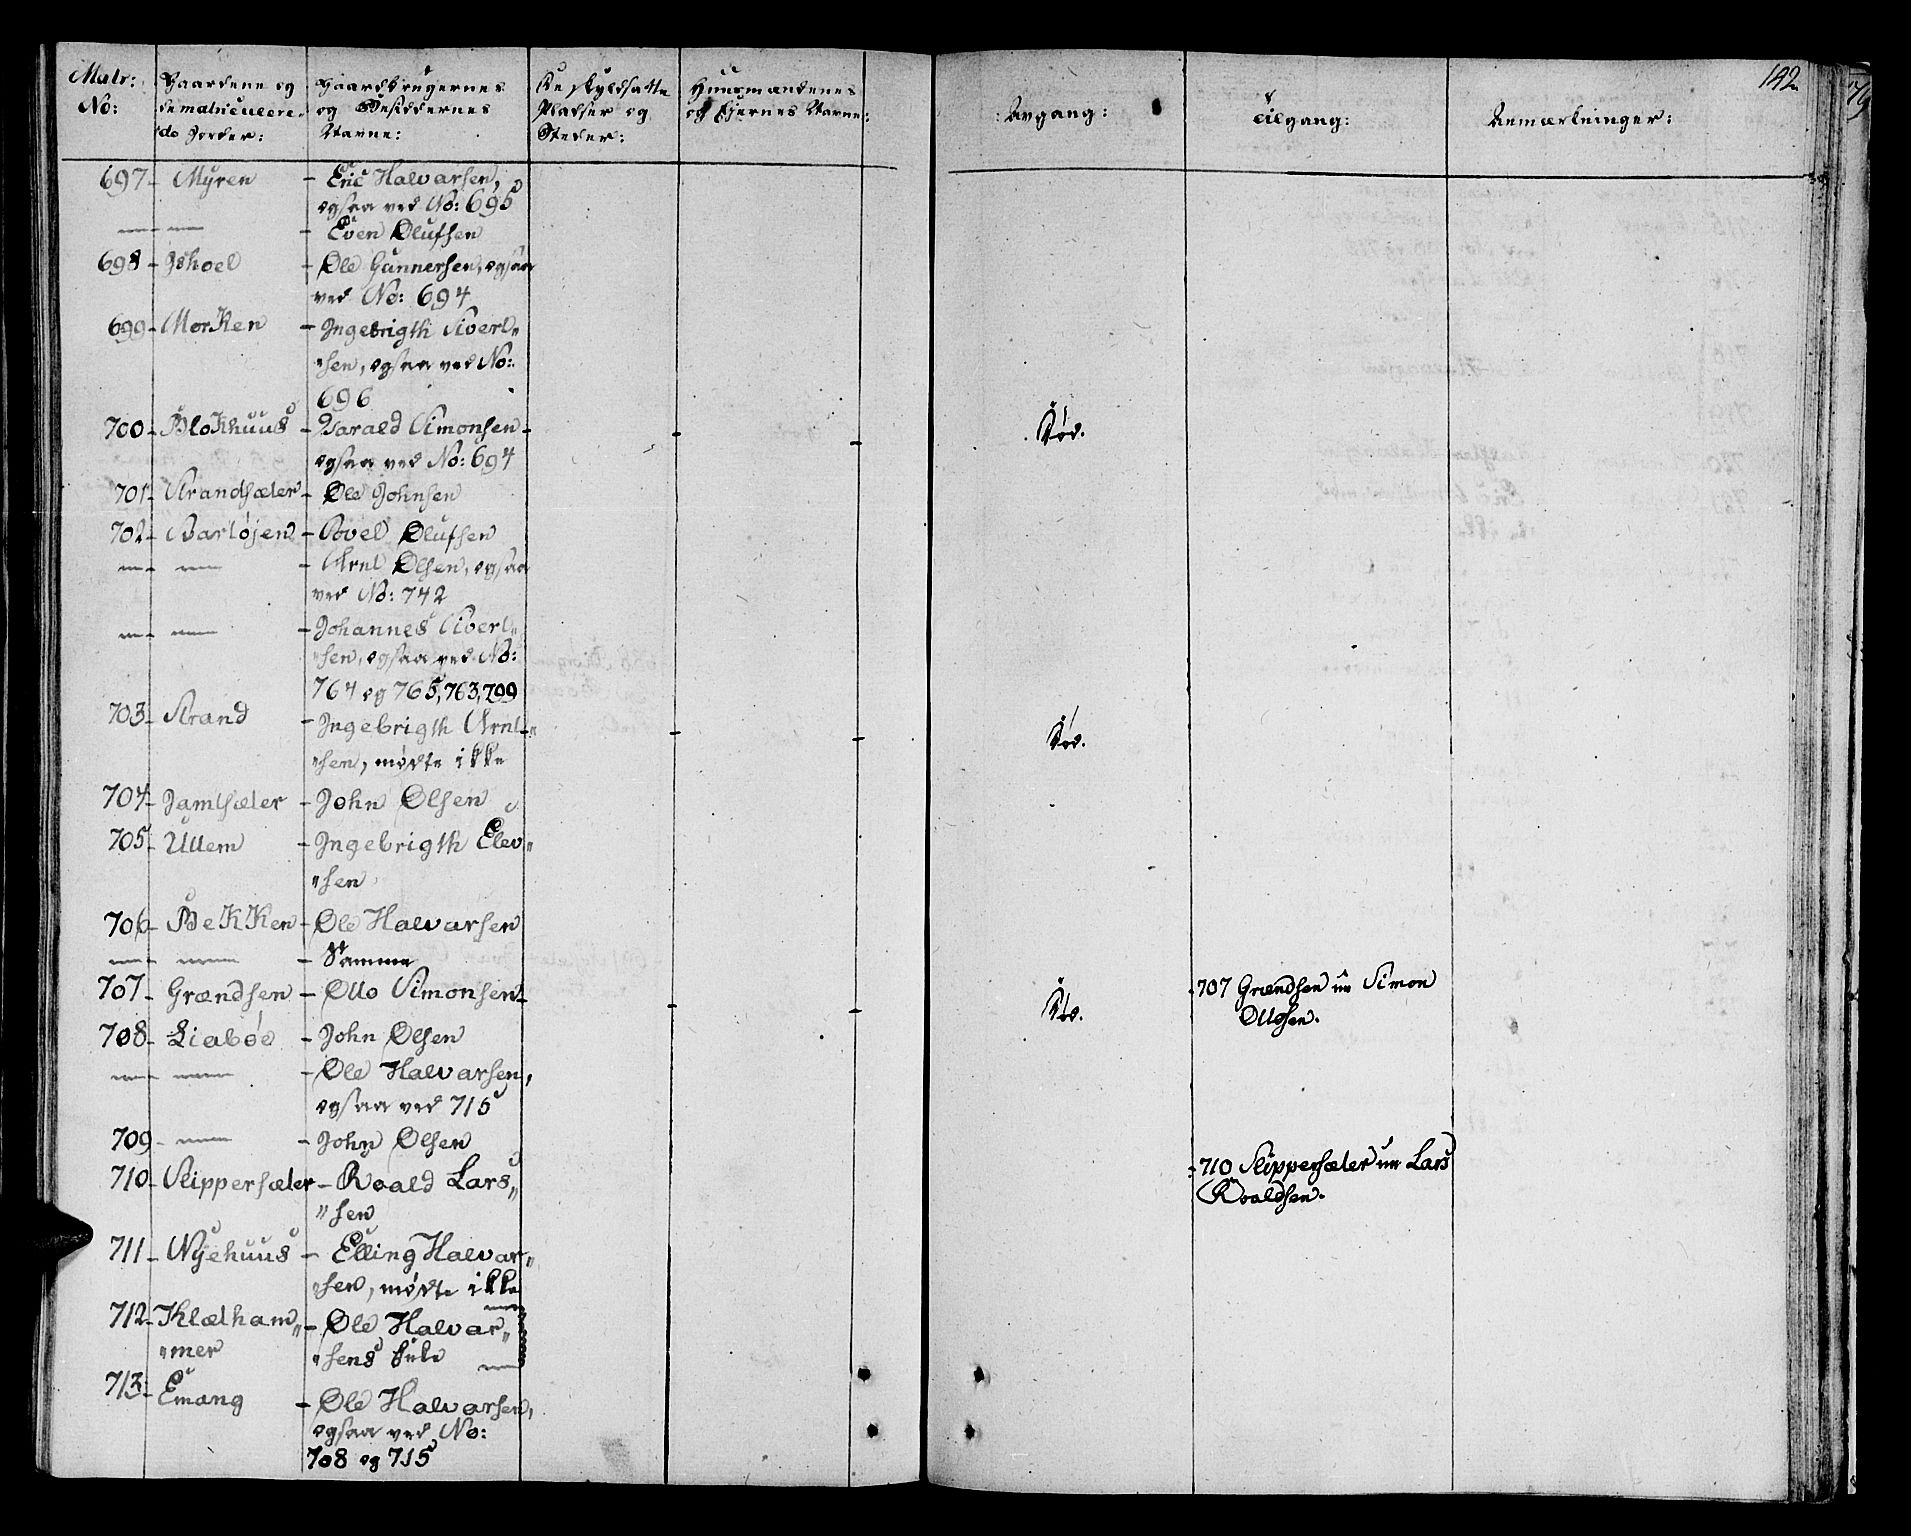 Matr: No:
Gaardene og de matriculerede Jorder:
Gaardbrugernes og Besiddernes Navne:
Pladser og Steder:
Huusmændenes og Eiernes Navne:
Avgang:
Tilgang:
Anmærkninger:
142
697 - Myren - Eric Halvarsen,
ogsaa ved No: 695
- Even Olufsen
698 - Ishoel - Ole Gunnersen, ogsaa
ved No: 694
699 - Morken - Ingebrigth Sivert-
sen, ogsaa ved No:
696
700 - Blokhuus - Harald Simonsen - Død.
ogsaa ved No: 694
701 - Strandsæter - Ole Johnsen
702 - Barløjen - Povel Olufsen
- Arnt Olsen, ogsaa
ved No: 742
- Johannes Sivert-
sen, ogsaa ved No:
764 og 765, 763, 709
703 - Strand - Ingebrigth Arnt- Død.
sen, mødte ikke
704 - Jamtsæter - John Olsen
705 - Ullem - Ingebrigth Elev-
sen
706 - Bekken - Ole Halvarsen
- Samme
707 - Grændsen - Otto Simonsen - Død. 707 Grændsen nu Simon
Ottosen.
708 - Liabøe - John Olsen
- Ole Halvarsen,
ogsaa ved 715
709 - John Olsen
710 - Slippersæter - Roald Lars- 710 Slippersæter nu Lars
sen Roaldsen.
711 - Nyehuus - Elling Halvar-
sen, mødte ikke
712 - Klætham- - Ole Halvar-
mer sens
713 - Emang - Ole Halvarsen,
ogsaa ved No:
708 og 715